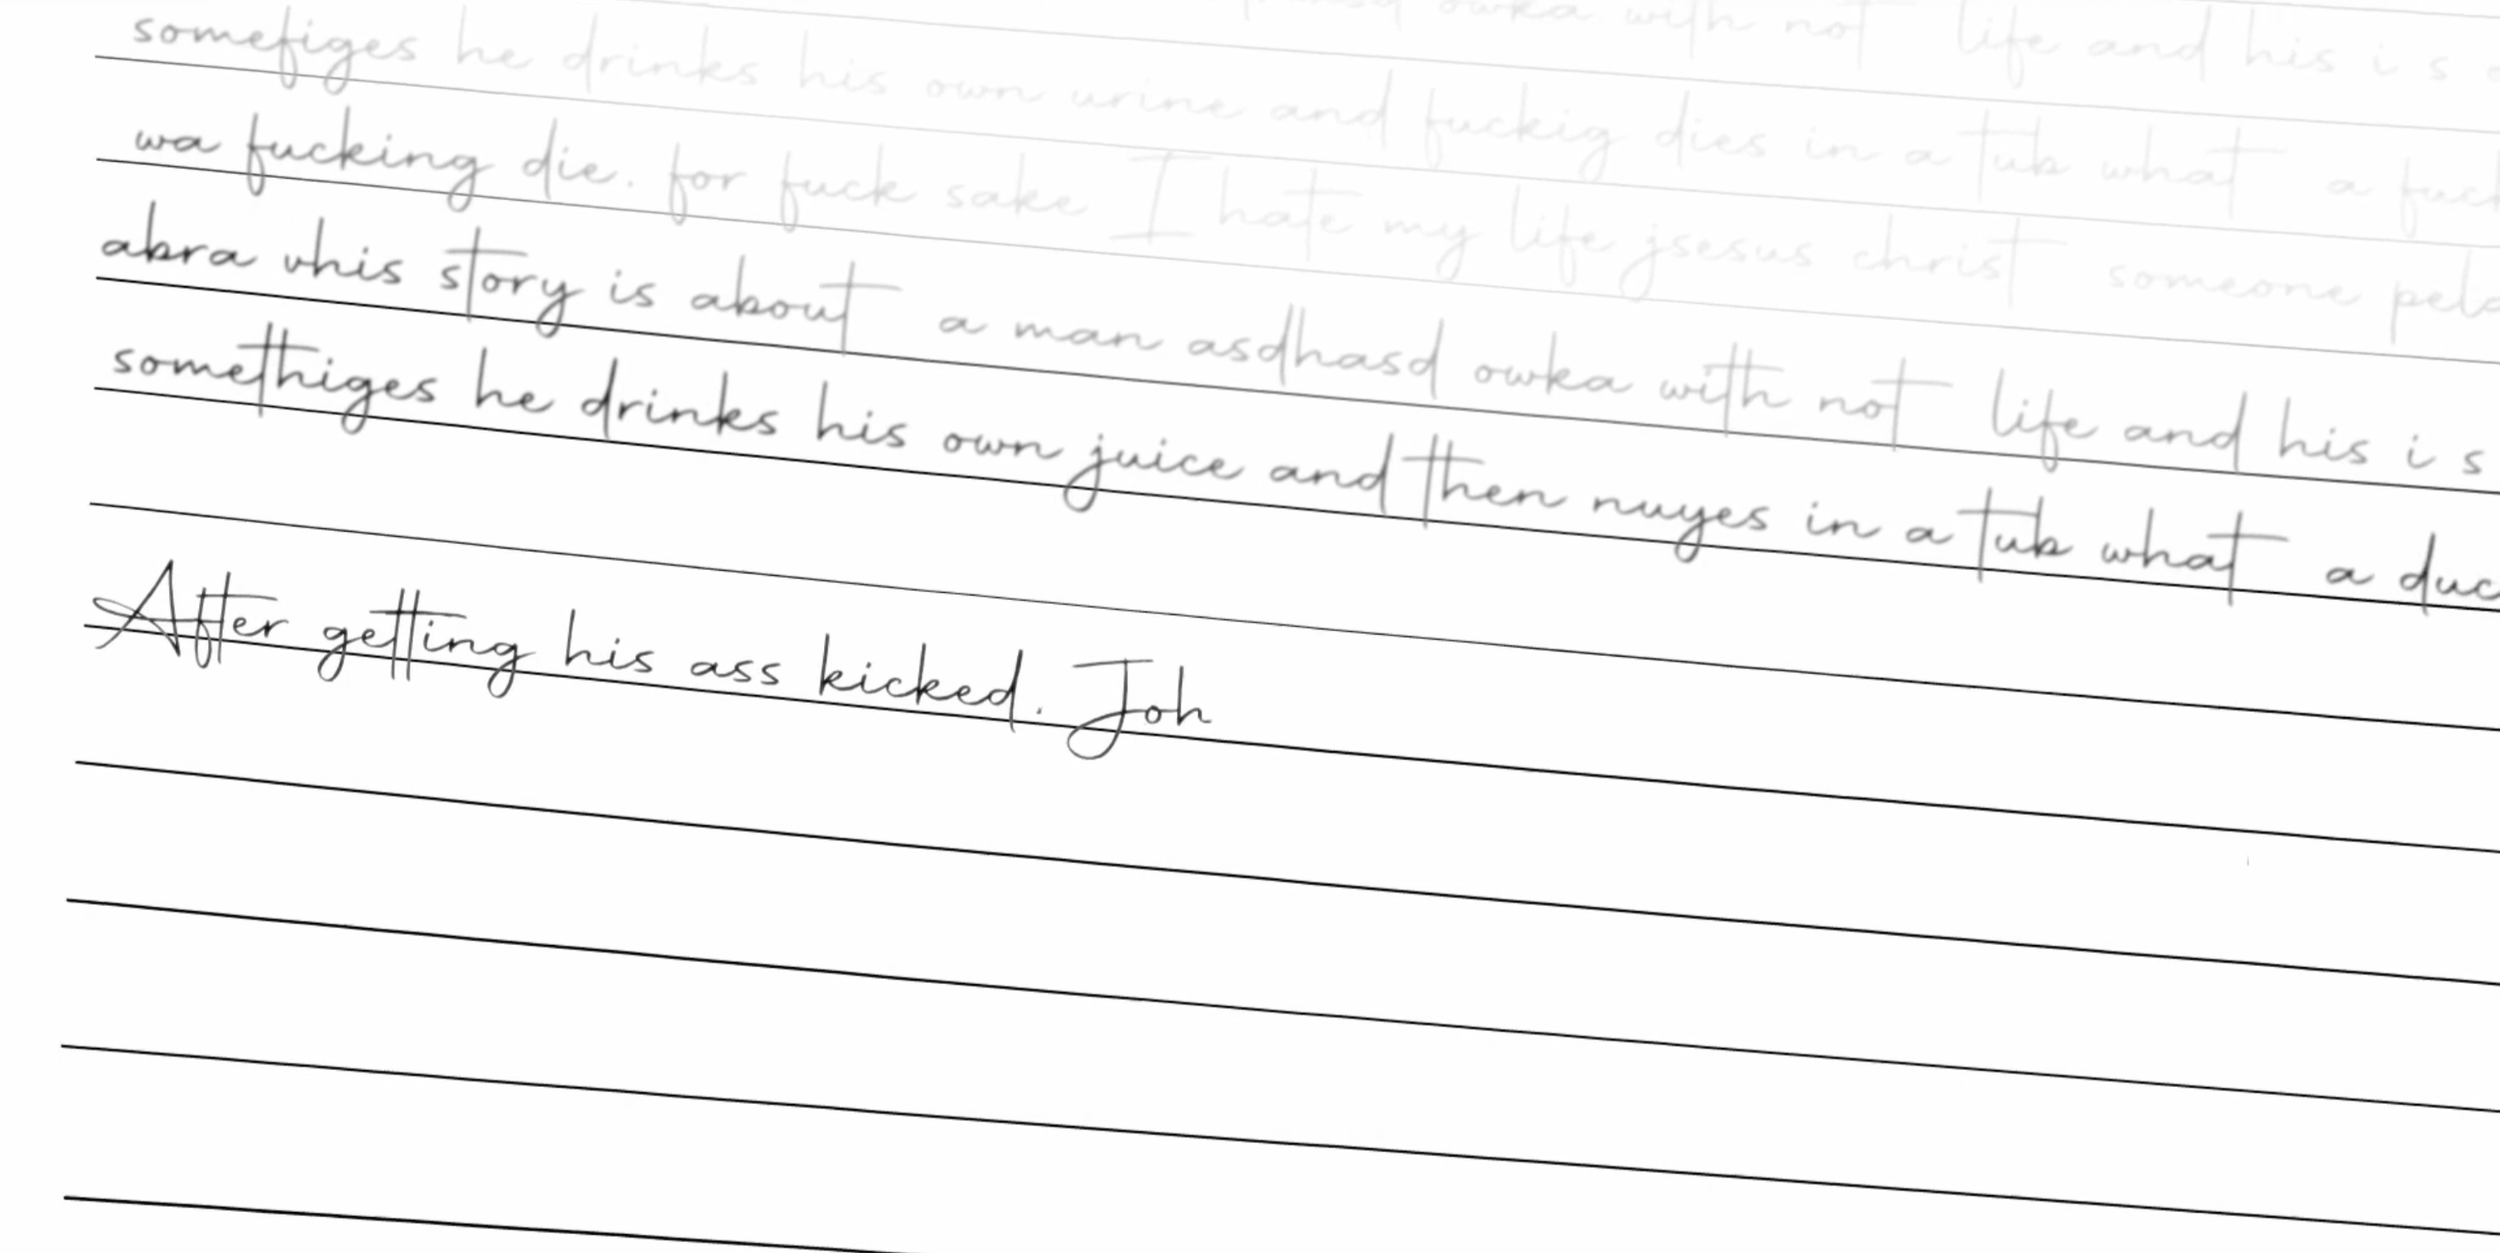 owka with not life and his i s
somefiges he drinks his own urine and fuckig dies in a tub what a fuck
wa fucking die. for fuck sake I hate my life jsesus christ someone pela
abra vhis story is about a man asdhasd owka with not life and his i s
somethiges he drinks his own juice and then nuyes in a tub what a duc
After getting his ass kicked. Joh